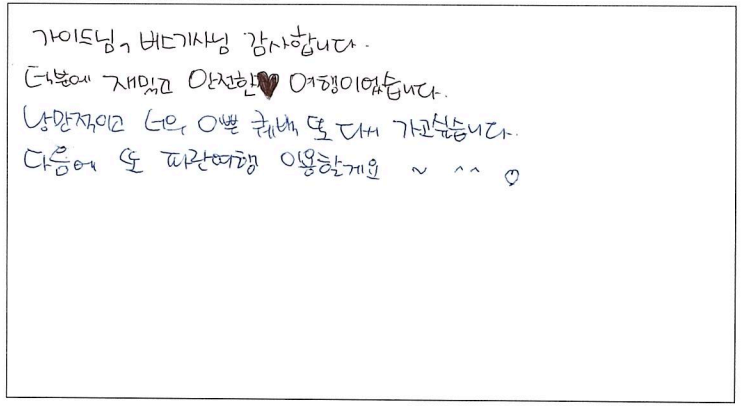 가이드님, 버스기사님 감사합니다.
덕분에 재밌고 안전한♥ 여행이었습니다.
낭만적이고 너무 이쁜 퀘벡 또 다시 가고싶습니다.
다음에 또 파란여행 이용할게요 ~ ^^ ♡